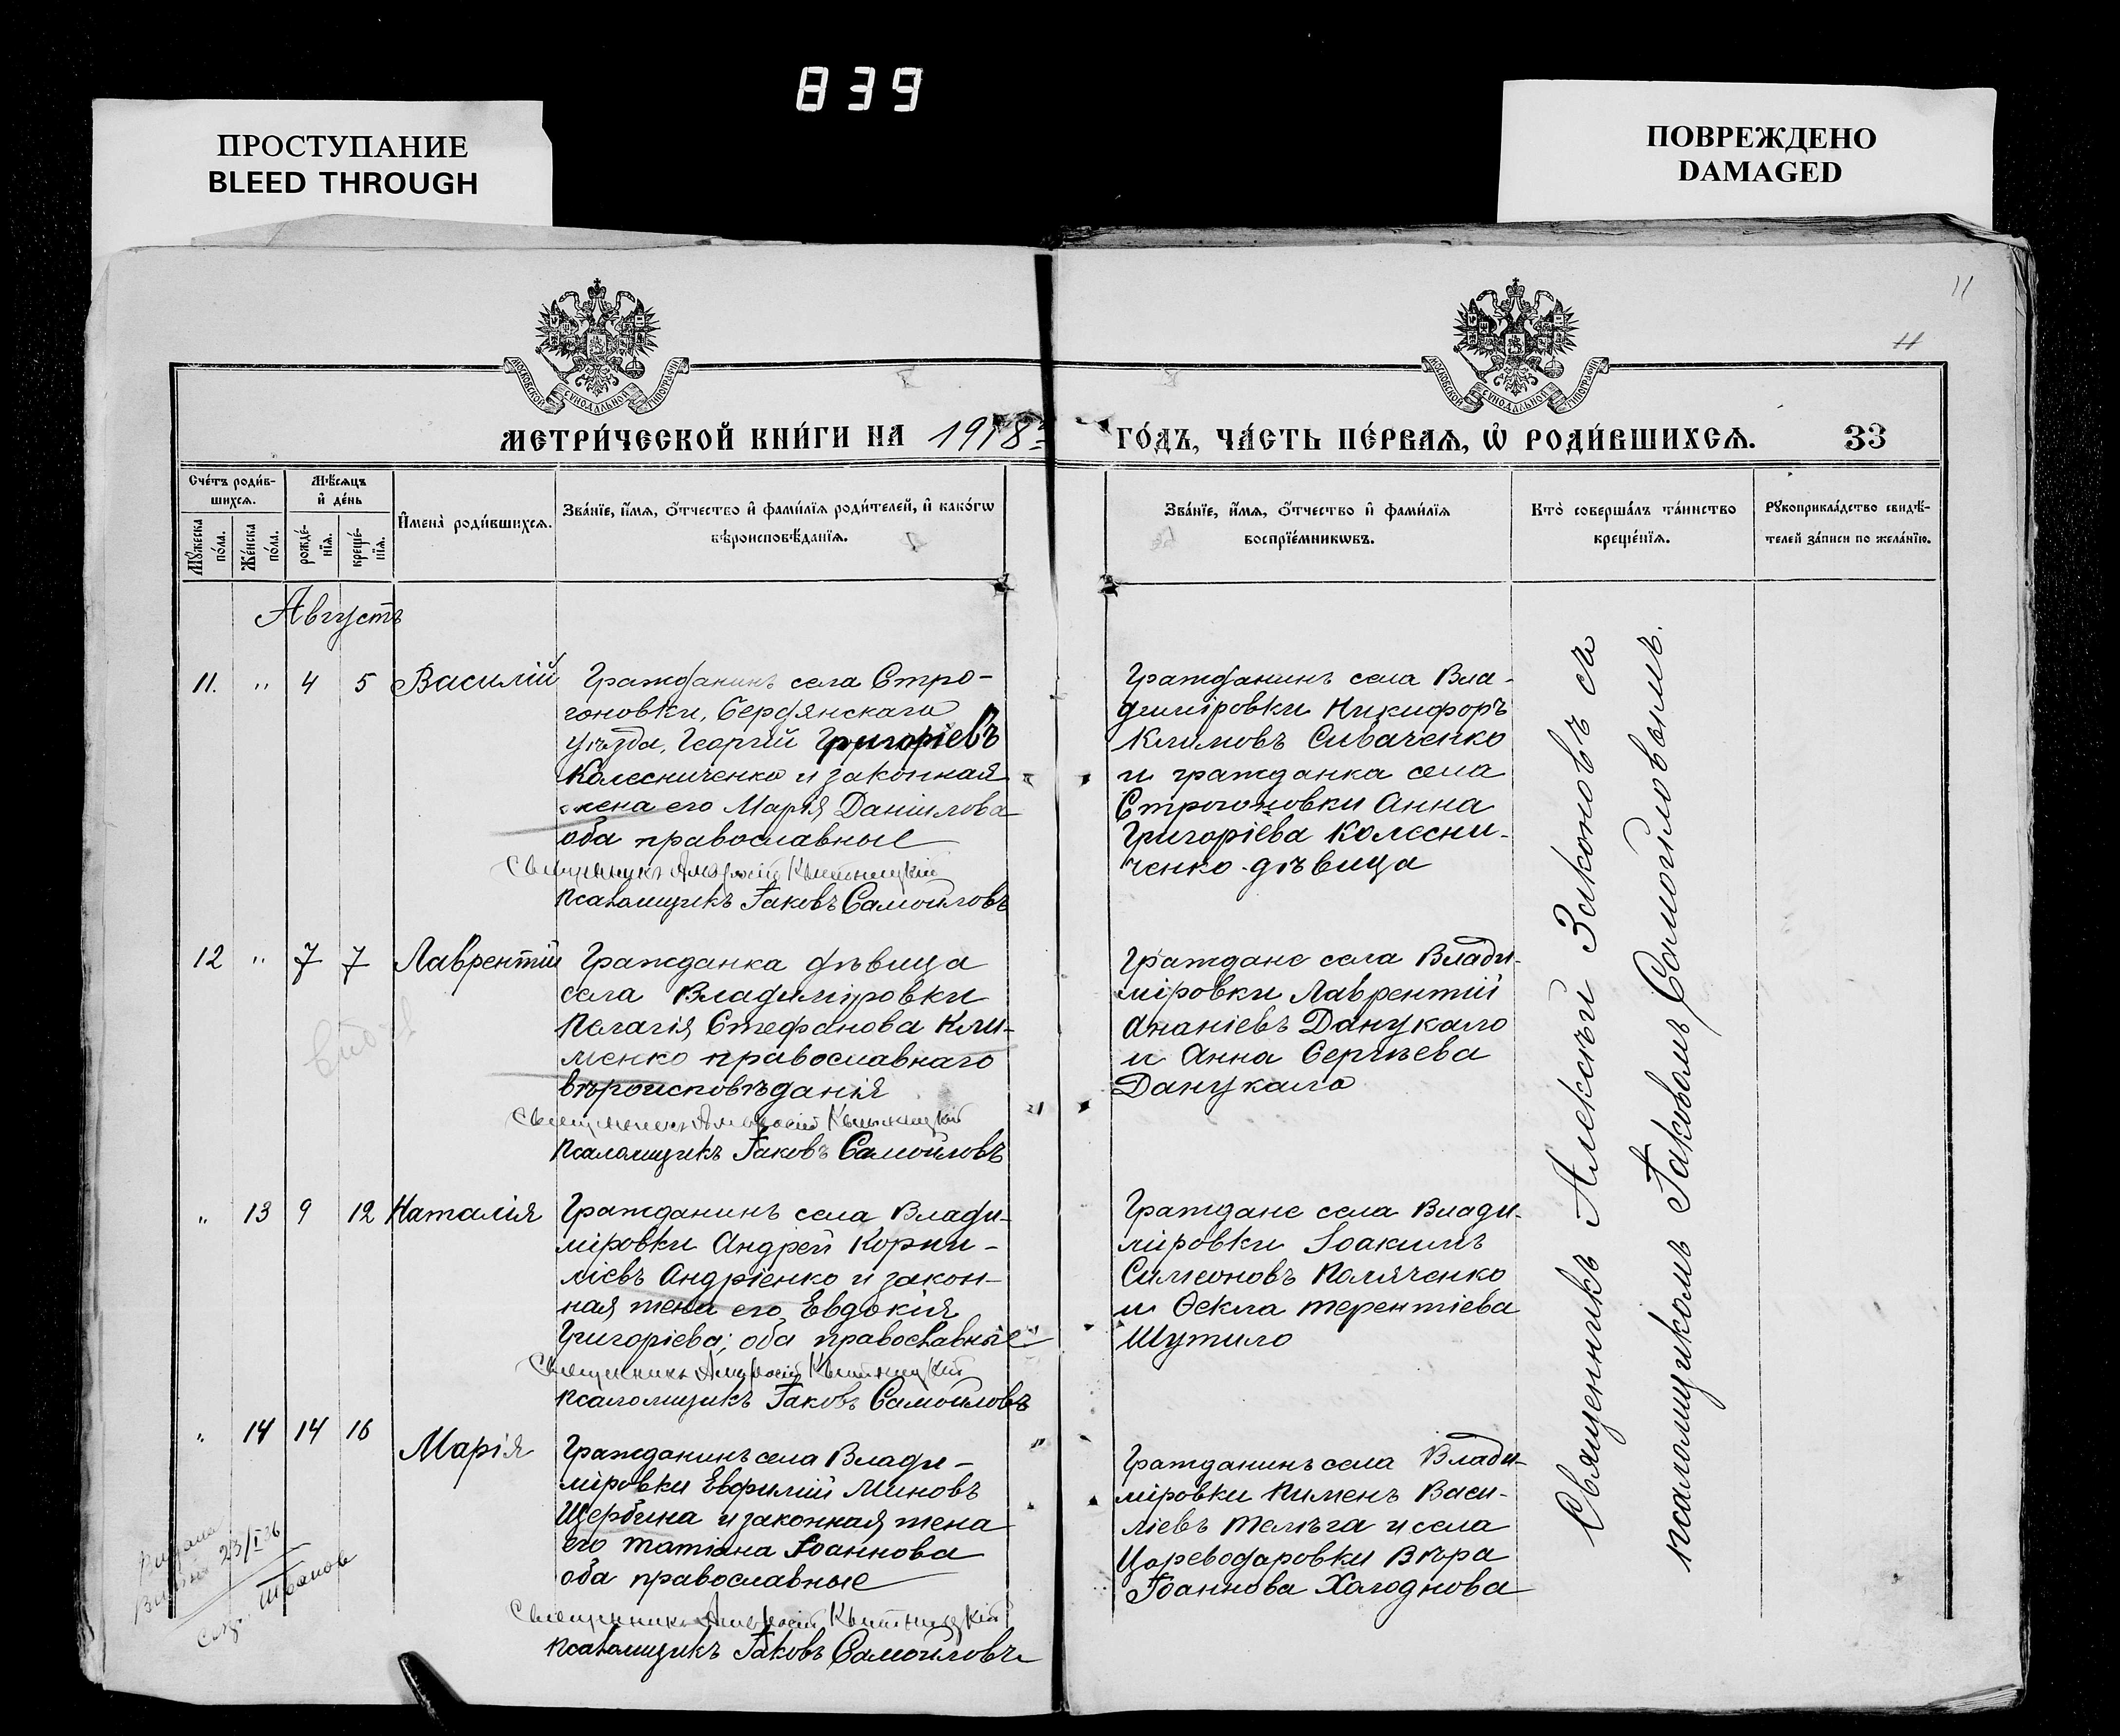 839
ПРОСТУПАНИЕ
BLEED THROUGH
ПОВРЕЖДЕНО
DAMAGED
11
11
МОСКОВСКОЙ СѴНОДАЛЬНОЙ ТИПОГРАФІИ
МОСКОВСКОЙ СѴНОДАЛЬНОЙ ТИПОГРАФІИ
МЕТРИ́ЧЕСКОЙ КНИ́ГИ НА 1918й ГО́ДЪ, ЧА́СТЬ ПЕ́РВАѦ, Ѡ҆ РОДИ́ВШИХСѦ. 33
Сче́тъ роди́в-
шихсѧ.
Мꙋ́жеска по́ла.
Же́нска по́ла.
Мѣ́сѧцъ
и҆ де́нь
рожде́-
нїѧ.
креще́-
нїѧ.
И҆мена̀ роди́вшихсѧ.
Зва́нїе, и҆́мѧ, ѻ҆́тчество и҆ фами́лїѧ роди́телей, и҆ како́гѡ
вѣроисповѣ́данїѧ.
Зва́нїе, и҆́мѧ, ѻ҆́тчество и҆ фами́лїѧ
воспрїе́мникѡвъ.
Кто̀ соверша́лъ та́инство
креще́нїѧ.
Рꙋкоприкла́дство свидѣ́-
телей за́писи по жела́нїю.
Августъ
11. " 4 5 Василій
Гражданинъ села Стро-
гоновки, Бердянскаго
уѣзда, Георгій Григоріевъ
Колесниченко и законная
жена его Марія Даніилова
оба православные
Священникъ Амвросій Квитницкій
Псаломщикъ Іаковъ Самойловъ
Гражданинъ села Вла-
диміровки Никифоръ
Климовъ Сиваченко
и гражданка села
Строгоновки Анна
Григоріева Колесни-
ченко-дѣвица
12 " 7 7 Лаврентій
Гражданка дѣвица
села Владиміровки
Пелагія Стефанова Кли-
менко православнаго
вѣроисповѣданія
Священникъ Амвросій Квитницкій
Псаломщикъ Іаковъ Самойловъ
Граждане села Влади-
міровки Лаврентій
Ананіевъ Данукало
и Анна Сергѣева
Данукало
" 13 9 12 Наталія
Гражданинъ села Влади-
міровки Андрей Корни-
ліевъ Андріенко и закон-
ная жена его Евдокія
Григоріева; оба православные
Священникъ Амвросій Квитницкій
Псаломщикъ Іаковъ Самойловъ
Граждане села Влади-
міровки Іоакимъ
Симеоновъ Поляченко
и Ѳекла Терентіева
Шутило
" 14 14 16 Марія
Гражданинъ села Влади-
міровки Евфимій Миновъ
Щербина и законная жена
его Татіана Іоаннова
оба православные
Священникъ Амвросій Квитницкій
Псаломщикъ Іаковъ Самойловъ
Гражданинъ села Влади-
міровки Пименъ Васи-
ліевъ Телѣга и села
Цареводаровки Вѣра
Іоаннова Холоднова
Священникъ Алексѣй Законовъ съ
псаломщикомъ Іаковомъ Самойловымъ.
23/I 26